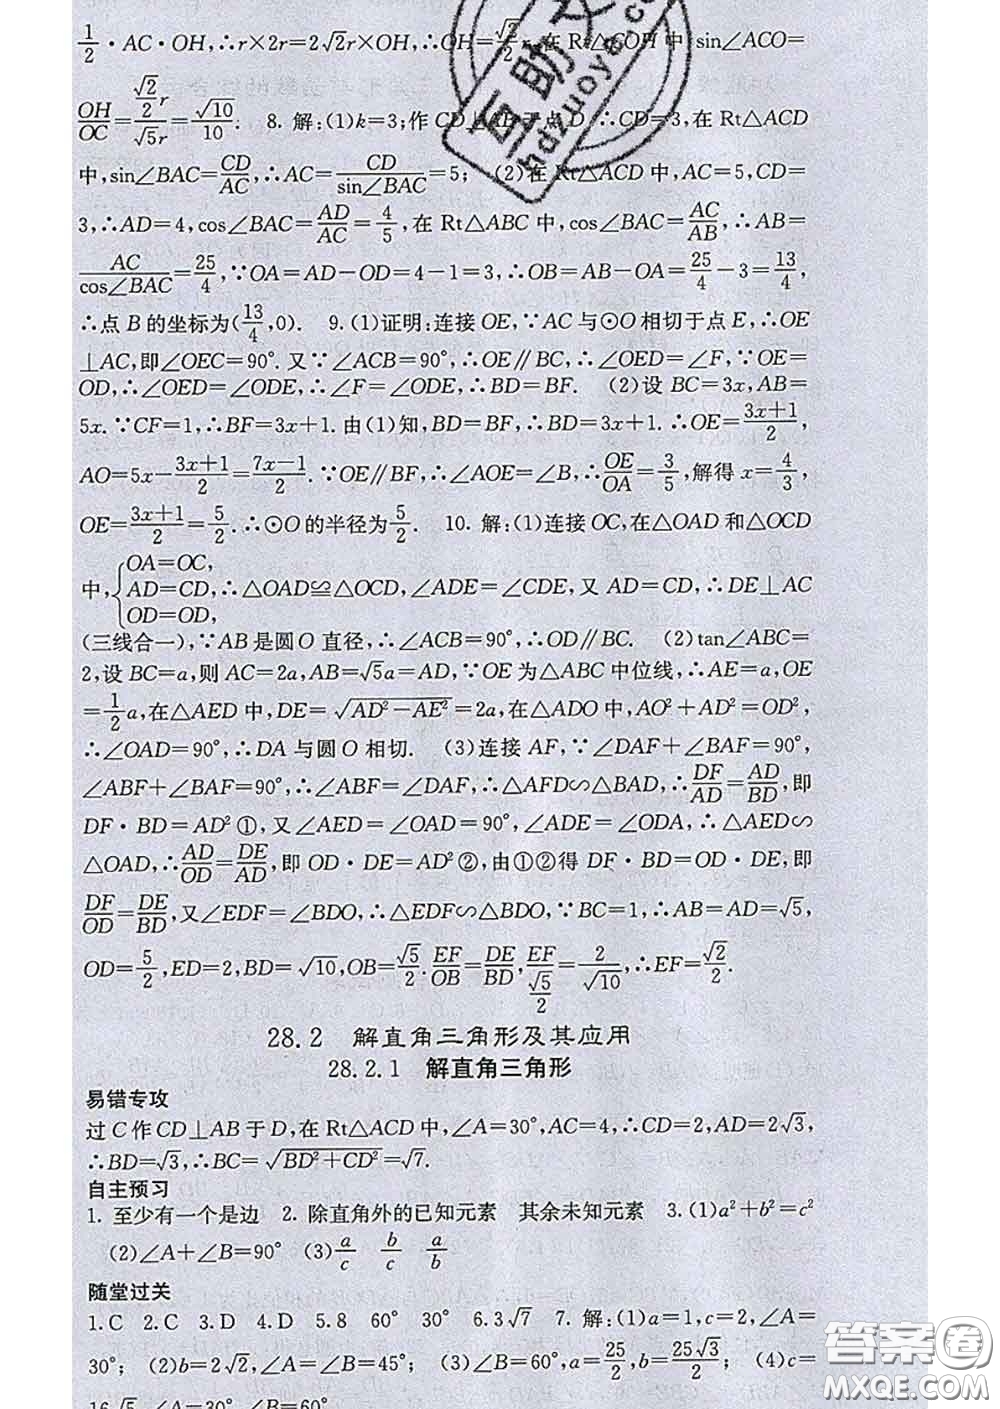 1/2·AC·OH,∴r×2r=2√2r×OH,∴OH=√2/2 r.在Rt△COH中,sin∠ACO=
OH/OC=(√2/2 r)/(√5r)=√10/10; 8. 解:(1)k=3;作CD⊥AB于点D,∴CD=3,在Rt△ACD
中,sin∠BAC=CD/AC,∴AC=CD/sin∠BAC=5; (2)在Rt△ACD中,AC=5,CD=
3,∴AD=4,cos∠BAC=AD/AC=4/5,在Rt△ABC中,cos∠BAC=AC/AB,∴AB=
AC/cos∠BAC=25/4,∵OA=AD-OD=4-1=3,∴OB=AB-OA=25/4-3=13/4,
∴点B的坐标为(13/4,0). 9.(1)证明:连接OE,∵AC与⊙O相切于点E,∴OE
⊥AC,即∠OEC=90°.又∵∠ACB=90°,∴OE∥BC,∴∠OED=∠F,∵OE=
OD,∴∠OED=∠ODE,∴∠F=∠ODE,∴BD=BF. (2)设BC=3x,AB=
5x.∵CF=1,∴BF=3x+1.由(1)知,BD=BF,∴BD=3x+1.∴OE=(3x+1)/2,
AO=5x-(3x+1)/2=(7x-1)/2.∵OE∥BF,∴∠AOE=∠B,∴OE/OA=3/5,解得x=4/3,
OE=(3x+1)/2=5/2.∴⊙O的半径为5/2. 10. 解:(1)连接OC,在△OAD和△OCD
中,{OA=OC, AD=CD, OD=OD,∴△OAD≌△OCD,∠ADE=∠CDE,又AD=CD,∴DE⊥AC
(三线合一),∵AB是圆O直径,∴∠ACB=90°,∴OD∥BC. (2)tan∠ABC=
2,设BC=a,则AC=2a,AB=√5a=AD,∵OE为△ABC中位线,∴AE=a,OE
=1/2a,在△AED中,DE=√(AD²-AE²)=2a,在△ADO中,AO²+AD²=OD²,
∴∠OAD=90°,∴DA与圆O相切. (3)连接AF,∵∠DAF+∠BAF=90°,
∠ABF+∠BAF=90°,∴∠ABF=∠DAF,∴△AFD∽△BAD,∴DF/AD=AD/BD,即
DF·BD=AD²①,又∠AED=∠OAD=90°,∠ADE=∠ODA,∴△AED∽
△OAD,∴AD/OD=DE/AD,即OD·DE=AD²②,由①②得DF·BD=OD·DE,即
DF/OD=DE/BD,又∠EDF=∠BDO,∴△EDF∽△BDO,∵BC=1,∴AB=AD=√5,
OD=5/2,ED=2,BD=√10,OB=√5/2.EF/OB=DE/BD,EF/(√5/2)=2/√10,∴EF=√2/2.
28.2 解直角三角形及其应用
28.2.1 解直角三角形
易错专攻
过C作CD⊥AB于D,在Rt△ACD中,∠A=30°,AC=4,∴CD=2,AD=2√3,
∴BD=√3,∴BC=√(BD²+CD²)=√7.
自主预习
1. 至少有一个是边 2. 除直角外的已知元素 其余未知元素 3.(1)a²+b²=c²
(2)∠A+∠B=90° (3)a/c b/c a/b
随堂过关
1.C 2.C 3.D 4.D 5.8 60° 30° 6.3√7 7. 解:(1)a=1,c=2,∠A=
30°; (2)b=2√2,∠A=∠B=45°; (3)∠B=60°,a=25/2,b=25√3/2; (4)c=
16√5,∠A=30°,∠B=60°
答案圈
MXQE.COM